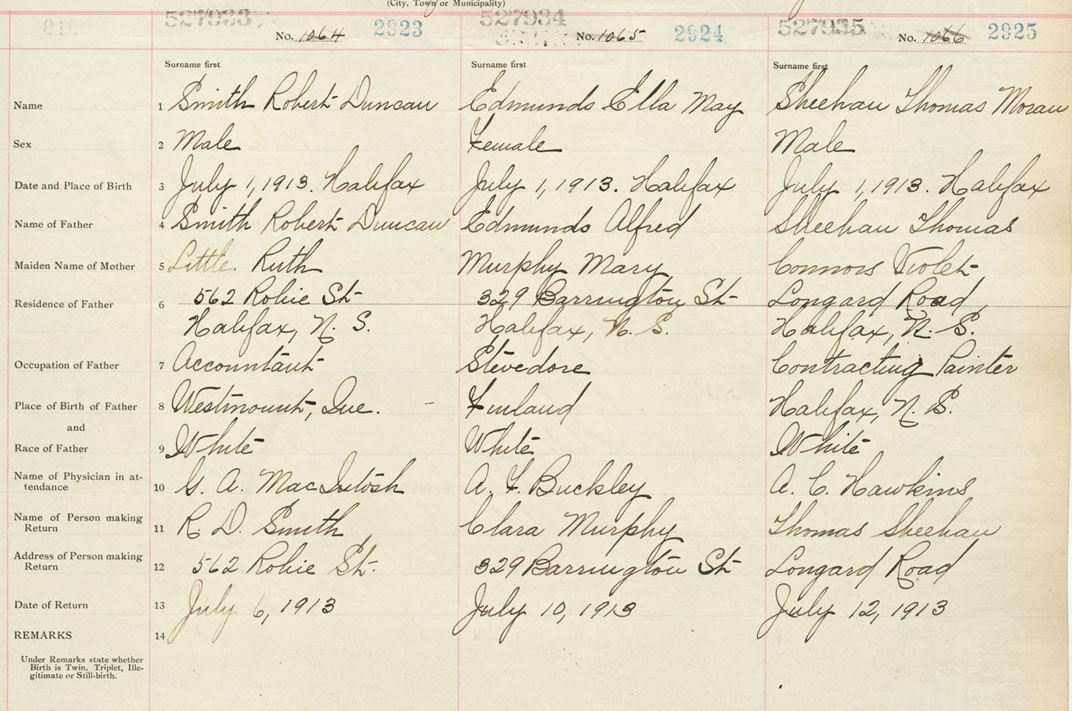 (City, Town or Municipality)
527933 527934 527935
No. 1064 2923 No. 1065 2924 No. 1066 2925
Surname first Surname first Surname first
Name 1 Smith Robert Duncan Edmunds Ella May Sheehan Thomas Moran
Sex 2 Male Female Male
Date and Place of Birth 3 July 1, 1913. Halifax July 1, 1913. Halifax July 1, 1913. Halifax
Name of Father 4 Smith Robert Duncan Edmunds Alfred Sheehan Thomas
Maiden Name of Mother 5 Little Ruth Murphy Mary Connors Violet
Residence of Father 6 562 Robie St- 329 Barrington St- Longard Road
Halifax, N. S. Halifax, N. S. Halifax, N. S.
Occupation of Father 7 Accountant Stevedore Contracting Painter
Place of Birth of Father 8 Westmount, Que. - Finland Halifax, N. S.
and
Race of Father 9 White White White
Name of Physician in at-
tendance 10 G. A. MacIntosh A. F. Buckley A. C. Hawkins
Name of Person making
Return 11 R. D. Smith Clara Murphy Thomas Sheehan
Address of Person making
Return 12 562 Robie St. 329 Barrington St- Longard Road
Date of Return 13 July 6, 1913 July 10, 1913 July 12, 1913
REMARKS 14
Under Remarks state whether
Birth is Twin, Triplet, Ille-
gitimate or Still-birth.